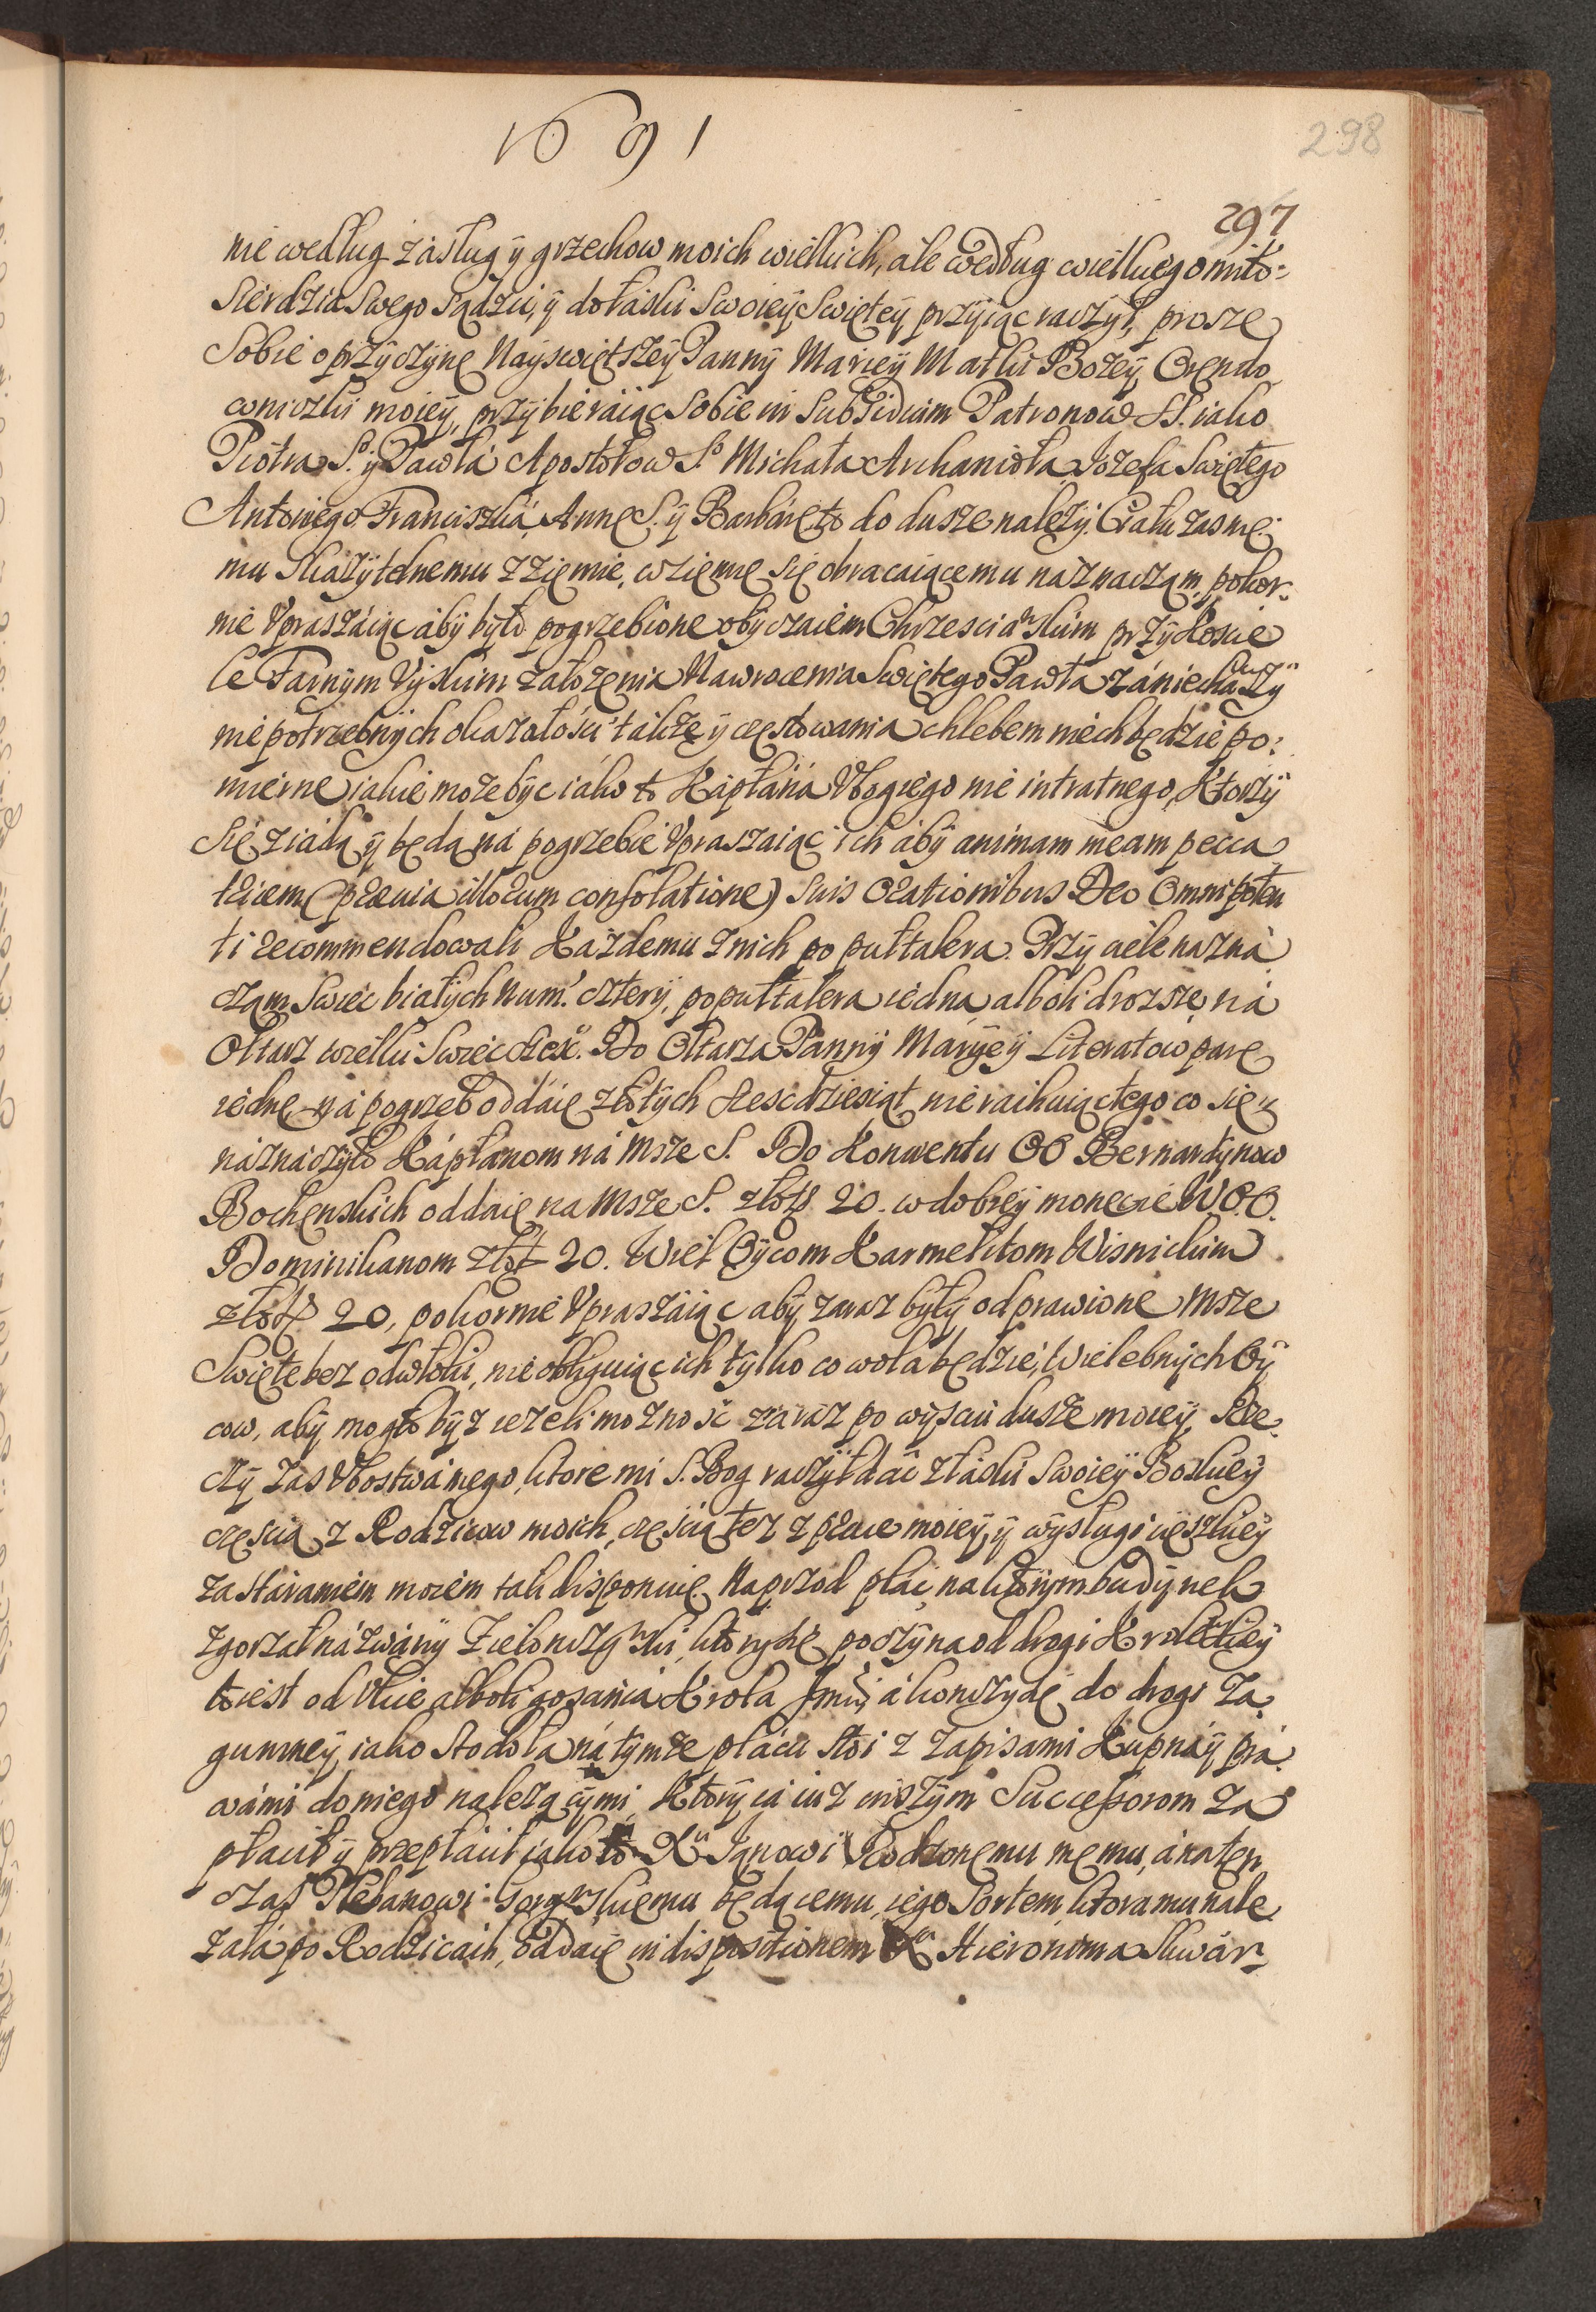 1691
298
297
nie według zasług y grzechow moich wielkich, ale według wielkiego miło=
sierdzia swego sądzić, y do łaski swoieÿ Swiętey przyiąc raczył, prosze
Sobie o przÿczÿnę Nayswiętszeÿ Panny Marieÿ Matki Bożey Orędo
wniczki moieÿ, przybieraiąc sobie in Subsidium Patronow SS. iako
Piotra S. y Pawła Apostołow S.º Michała Archanioła, Jozefa Swiętego
Antoniego Franciszka, Annę S. ÿ Barbarę, to do dusze należy. Ciału zas me=
mu skazÿtelnemu z ziemie, w ziemię się obracaiącemu naznaczam, pokor=
nie vpraszaiąc abÿ było pogrzebione obyczaiem Chrzesciańskim przÿ Koscie
le Farnym Vyskim założenia Nawrocenia Swiętego Pawła zaniechawszÿ
niepotrzebnych okazałosci także y częstowania chlebem niech będzie po=
mierne iakie może byc iako to Kapłana Vbogiego nie intratnego, Ktorzÿ
się ziadą ÿ będą na pogrzebie vpraszaiąc ich abÿ animam meam pecca
tricem (prævia illorum consolatione) suis Orationibus Deo Omnipoten
ti recommendowali Kazdemu z nich po pułtalera. Przy ciele nazna
czam swiec białych Num.º czterÿ, po pułtalera iedna, alboli drozsze, na
Ołtarz wielki swiec szesc. Do Ołtarza Panny Maryey Literatow parę
iednę, na pogrzeb oddaię złotych szescdziesiąt nie rachuiąc tego co się
naznaczyło Kapłanom na Msze S. Do Konwentu OO Bernardÿnow
Bochenskich oddaię na Msze S. złot 20. w dobreÿ monecie W.O.O.
Dominikanom złot 20. Wiel Oycom Karmelitom Wisnickim
złot 20, pokornie vpraszaiąc aby zaraz były odprawione Msze
Swięte bez odwłoki, nie obliguiąc ich tylko co wola będzie, Wielebnych Oÿ
cow, aby mogło bydz iezeli moznosc zaraz po wyisciu dusze moieÿ. Rze
czÿ zas Vbostwa mego, ktore mi S. Bog raczył dac z łaski swoieÿ Boskieÿ
częscią z Rodzicow moich, częscią tez z prace moieÿ, y wÿsługi cięszkieÿ
za staraniem moiem tak disponuię. Naprzod plac, na ktorym budynek
zgorzał nazwanÿ Zielonczÿnski, ktorysię poczyna od drogi Krolewskieÿ
to iest od vlice alboli gosanca Krola Jmći, a konczÿ się do drogi Za
gumneÿ, iako stodoła na tÿmze placu stoi z zapisami Kupnaÿ pra
wami do niego nalezącymi, Ktorÿ ia iuz inszym Successorom Za
płacił y przepłacił iako to Xu Janowi Rodzonemu memu, a naten
czas Plebanowi Gorzynskiemu będącemu, iego sortem, ktora mu nale
zała po Rodzicach, oddaię in dispositionem Xu Hieronima Skwar=